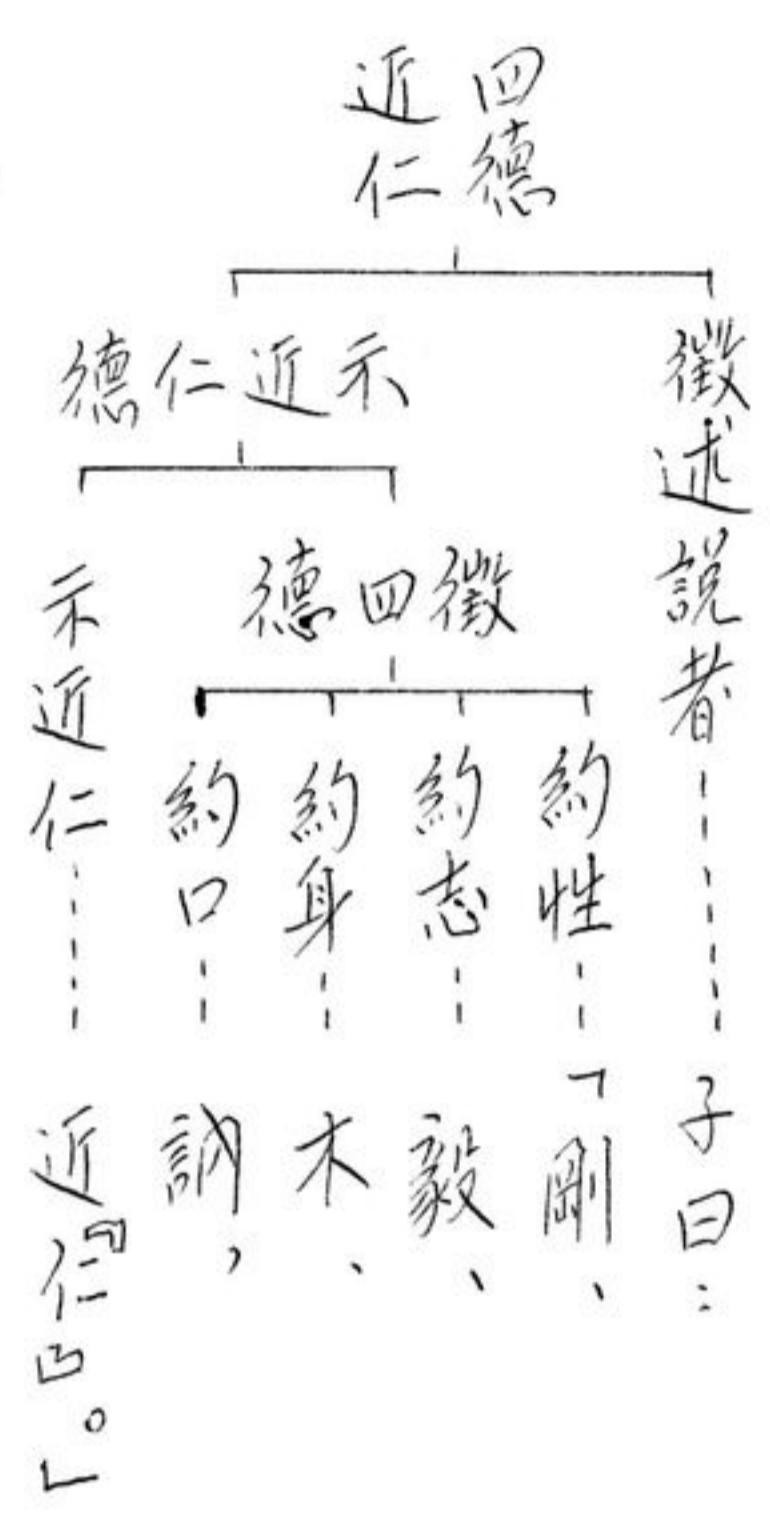 四德
近仁
徵述說者
子曰：
示近仁德
徵四德
約性
「剛、
約志
毅、
約身
木、
約口
訥，
示近仁
近仁『』。」